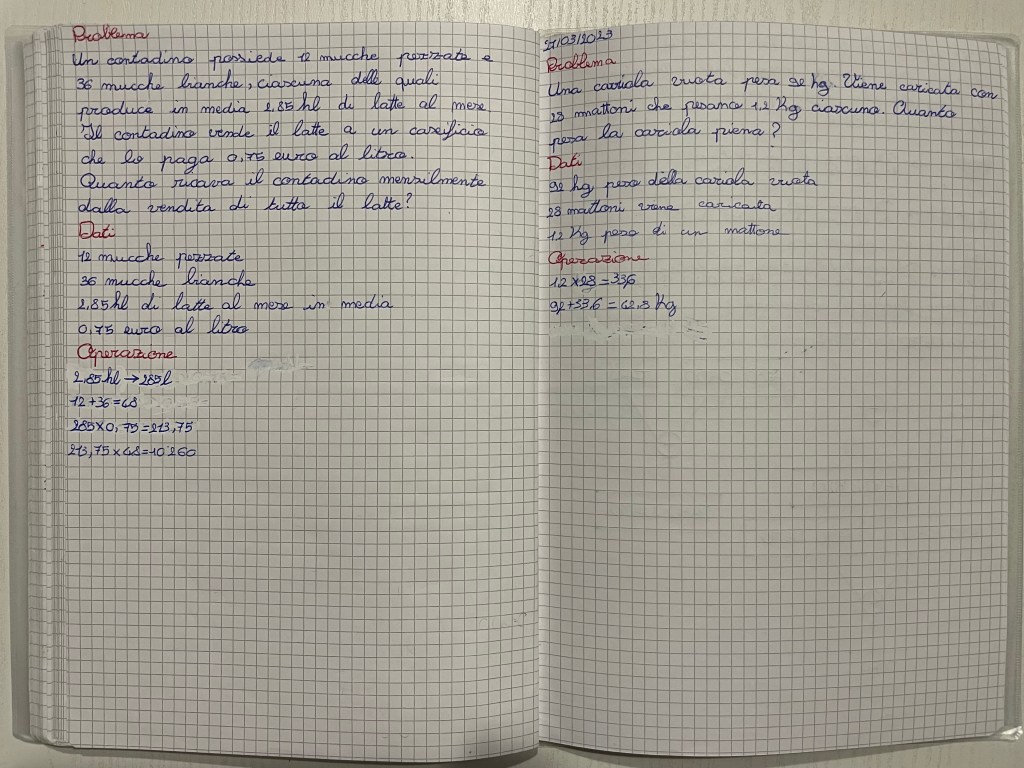 Problema
Un contadino possiede 12 mucche pezzate e
36 mucche bianche, ciascuna delle quali
produce in media 2,85 hl di latte al mese
Il contadino vende il latte a un caseificio
che lo paga 0,75 euro al litro.
Quanto ricava il contadino mensilmente
dalla vendita di tutto il latte?
Dati
12 mucche pezzate
36 mucche bianche
2,85 hl di latte al mese in media
0,75 euro al litro
Operazione
2,85 hl → 285 l
12+36=48
285×0,75=213,75
213,75×48=10260
27/03/2023
Problema
Una carriola vuota pesa 92 hg. Viene caricata con
28 mattoni che pesano 1,2 Kg ciascuno. Quanto
pesa la cariola piena?
Dati
92 hg peso della cariola vuota
28 mattoni viene caricata
1,2 Kg peso di un mattone
Operazione
1,2×28=33,6
9,2+33,6=42,8 Kg